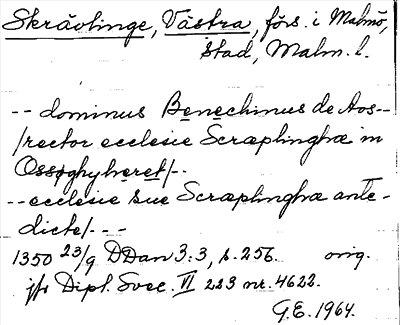 Skrävlinge, Västra, förs. i Malmö,
stad, Malm. l.
-- dominus Benechinus de Aos--
/rector ecclesie Scræplinghæ in
Ossøghyheret/--
-- ecclesie sue Scræplinghæ ante-
dicte/---
1350 23/9 DDan 3:3, s. 256. orig.
jfr Dipl. Svec. VI 223 nr. 4622.
G.E. 1964.